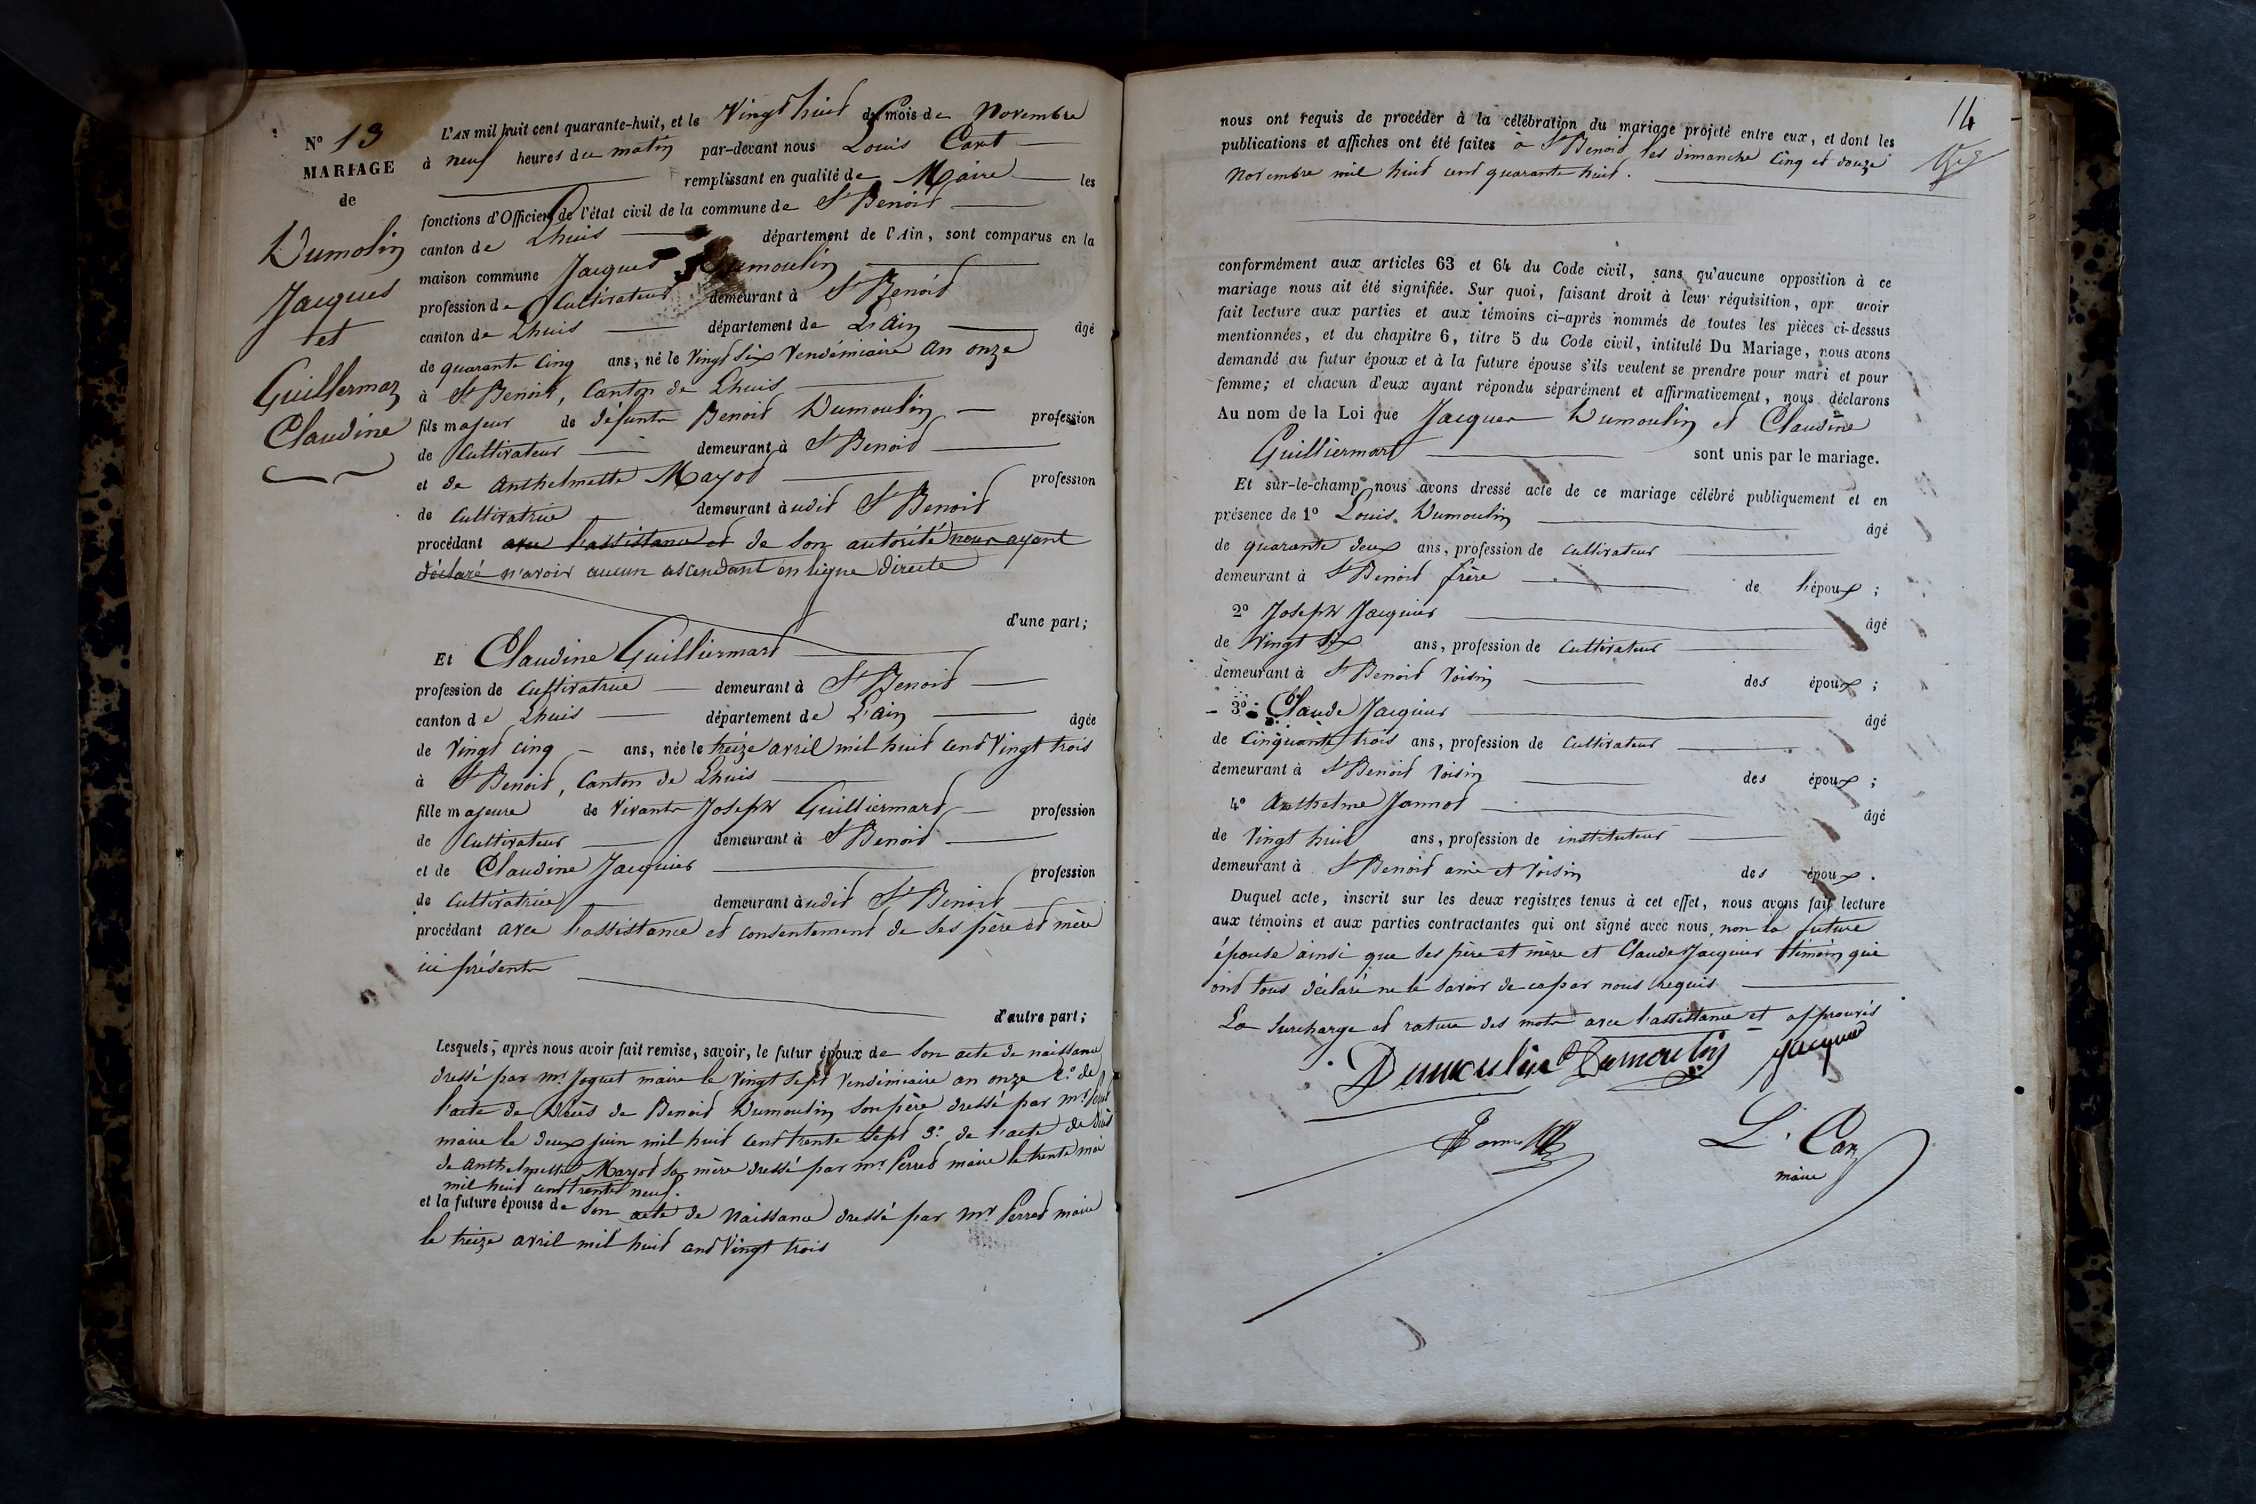 N° 13
MARIAGE
de
Dumolin
Jacques
et
Guillermaz
Claudine
L'AN mil huit cent quarante-huit, et le Vingt huit du mois de Novembre
à neuf heures du matin par-devant nous Louis Cart
remplissant en qualité de Maire les
fonctions d'Officier de l'état civil de la commune de St Benoit
canton de Lhuis département de l'Ain, sont comparus en la
maison commune Jacques Dumoulin
profession de Cultivateur demeurant à St Benoit
canton de Lhuis département de L'ain âgé
de quarante Cinq ans, né le Vingt Six Vendémiaire an onze
à St Benoit, Canton de Lhuis
fils majeur de défunts Benoit Dumoulin profession
de Cultivateur demeurant à St Benoit
et de Anthelmette Mayod profession
de Cultivatrice demeurant à udit St Benoit
procédant avec l'assistance et de son autorité nous ayant
déclaré n'avoir aucun ascendant en ligne directe
d'une part;
Et Claudine Guilliermard
profession de Cultivatrice demeurant à St Benoit
canton de Lhuis département de L'ain âgée
de Vingt cinq ans, née le treize avril mil huit cent Vingt trois
à St Benoit, Canton de Lhuis
fille majeure de Vivants Joseph Guilliermard profession
de Cultivateur demeurant à St Benoit
et de Claudine Jacquier profession
de Cultivatrice demeurant à udit St Benoit
procédant avec l'assistance et consentement de ses père et mère
ici présents
d'autre part;
Lesquels, après nous avoir fait remise, savoir, le futur époux de son acte de naissance
dressé par mr Joguet maire le Vingt sept Vendémiaire an onze 2.° de
l'acte de Décès de Benoit Dumoulin son père dressé par mr
maire le deux juin mil huit cent trente Sept 3.° de l'acte de Décès
de Anthelmette Mayod sa mère dressé par mr Perret maire le trente mai
mil huit cent trente neuf.
et la future épouse de son acte de Naissance dressé par Mr Perret maire
le treize avril mil huit cent Vingt trois
14
nous ont requis de procéder à la célébration du mariage projeté entre eux, et dont les
publications et affiches ont été faites à St Benoit, les dimanche Cinq et douze
Novembre mil huit cent quarante huit.
conformément aux articles 63 et 64 du Code civil, sans qu'aucune opposition à ce
mariage nous ait été signifiée. Sur quoi, faisant droit à leur réquisition, apr avoir
fait lecture aux parties et aux témoins ci-après nommés de toutes les pièces ci-dessus
mentionnées, et du chapitre 6, titre 5 du Code civil, intitulé Du Mariage, nous avons
demandé au futur époux et à la future épouse s'ils veulent se prendre pour mari et pour
femme; et chacun d'eux ayant répondu séparément et affirmativement, nous déclarons
Au nom de la Loi que Jacques Dumoulin et Claudine
Guilliermard sont unis par le mariage.
Et sur-le-champ nous avons dressé acte de ce mariage célébré publiquement et en
présence de 1° Louis Dumoulin âgé
de quarante deux ans, profession de Cultivateur
demeurant à St Benoit frère de l'époux ;
2° Joseph Jacquier âgé
de Vingt Six ans, profession de Cultivateur
demeurant à St Benoit Voisin des époux ;
3° Claude Jacquier âgé
de Cinquante trois ans, profession de Cultivateur
demeurant à St Benoit Voisin des époux ;
4° Anthelme Jannod âgé
de Vingt huit ans, profession de instituteur
demeurant à St Benoit ami et Voisin des époux .
Duquel acte, inscrit sur les deux registres tenus à cet effet, nous avons fait lecture
aux témoins et aux parties contractantes qui ont signé avec nous, non la future
épouse ainsi que ses père et mère et Claude Jacquier témoin qui
ont tous déclaré ne le savoir de ce par nous requis
La Surcharge et rature des mots avec l'assistance et approuvés
Dumoulin Dumoulin Jacquier
L. Cart
maire